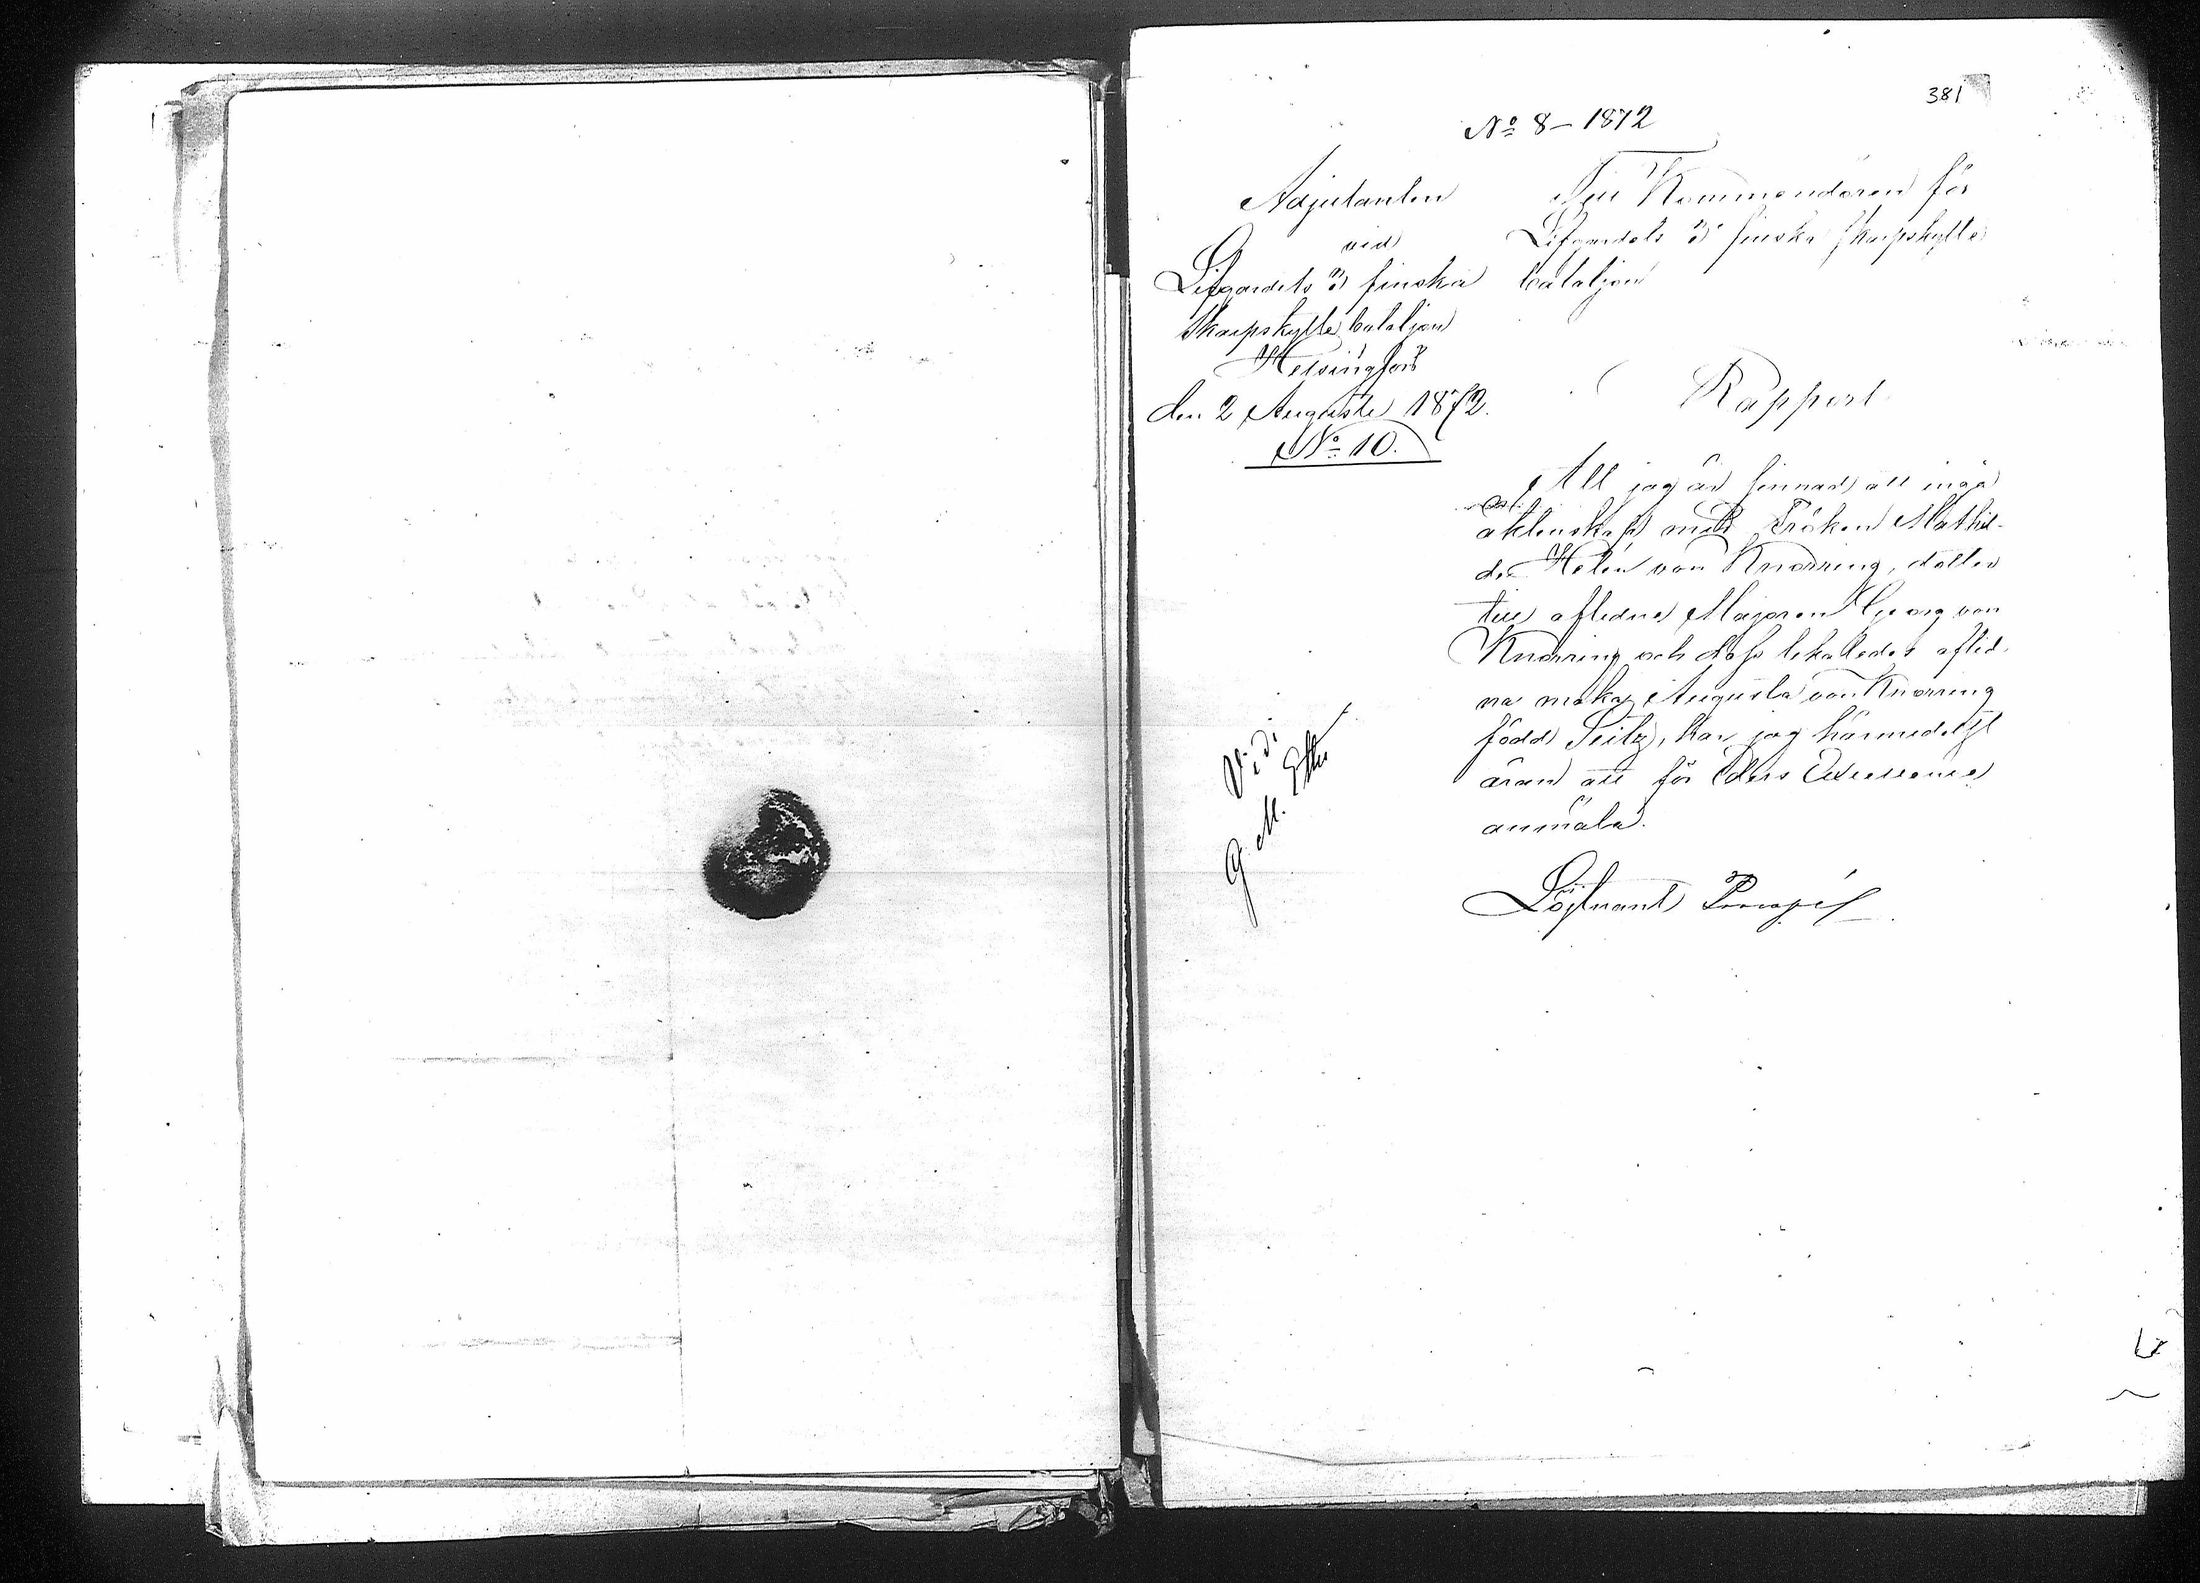 381
No 8 – 1872
Adjutanten
vid
Lifgardets 3 finska
Skarpskytte bataljon
Helsingfors
den 2 Augusti 1872.
No 10.
Till Kommendören för
Lifgardets 3 finska skarpskytte
bataljon
Rapport
Att jag är sinnad att ingå
äktenskap med Fröken Mathil-
de Helén von Knorring, dotter
till aflidne Majoren Georg von
Knorring och dess likaledes aflid-
na maka Augusta von Knorring
född Seitz, har jag härmedelst
äran att för Eders Excellence
anmäla.
Löjtnant
Vidi
G. M.